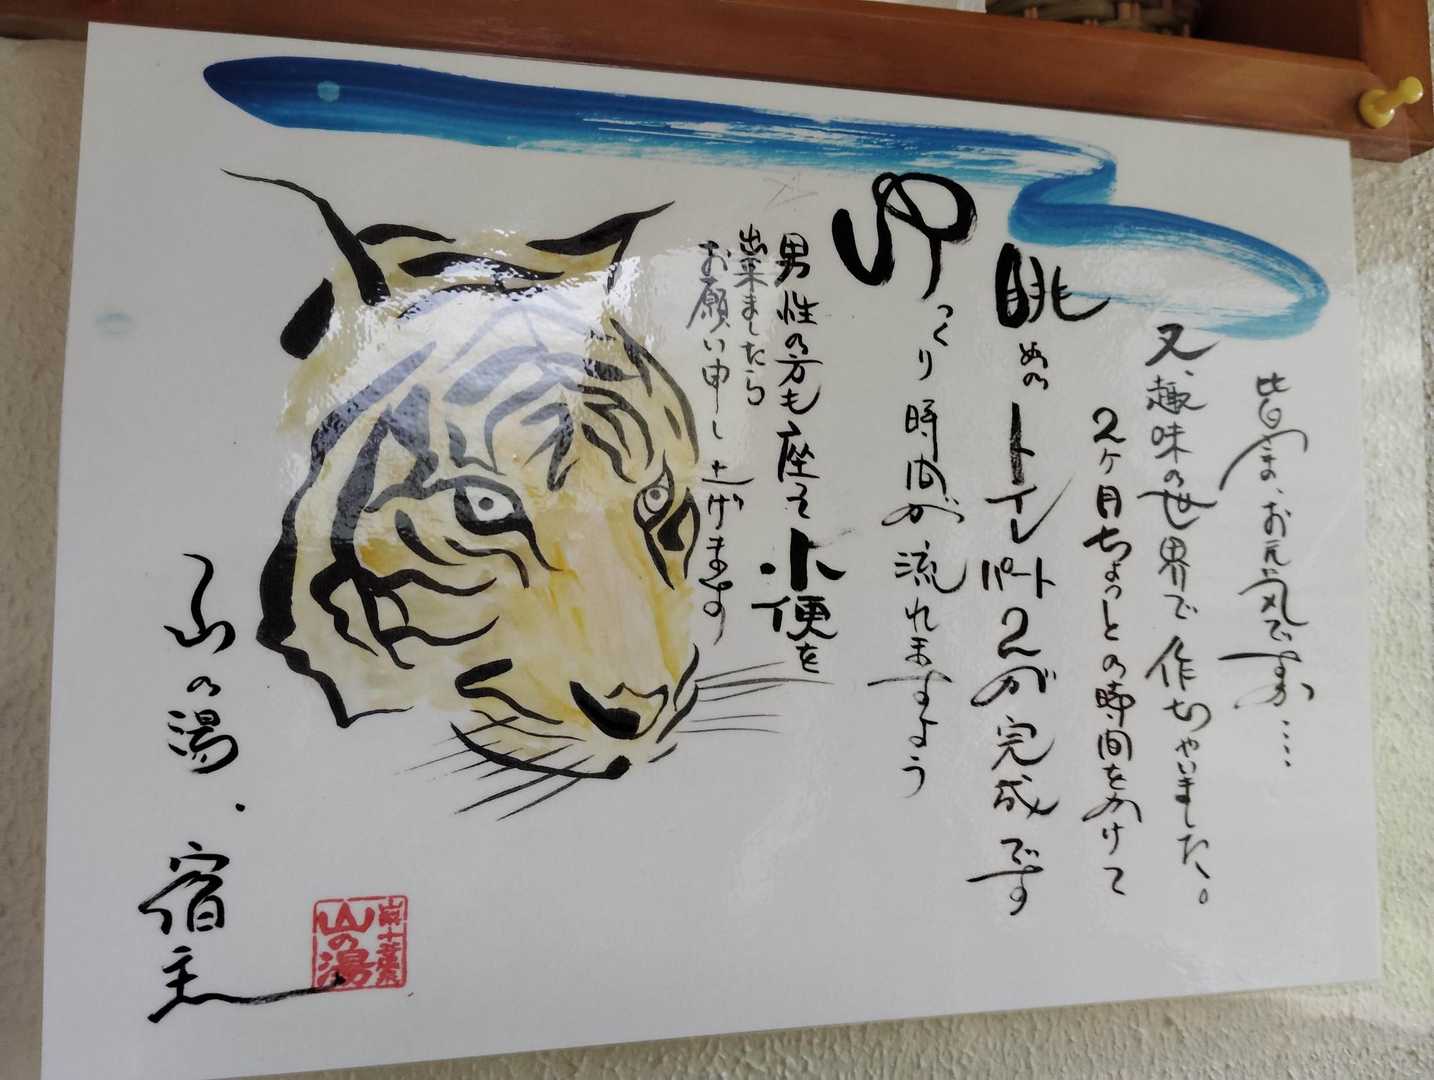 皆さま、お元気ですか....
又、趣味の世界で作っちゃいました。
2ヶ月ちょっとの時間をかけて
眺めのトイレパート2が完成です
ゆっくり時間が流れますよう
男性の方も座って小便を
出来ましたら
お願い申し上げます
山の湯.宿主
山の湯